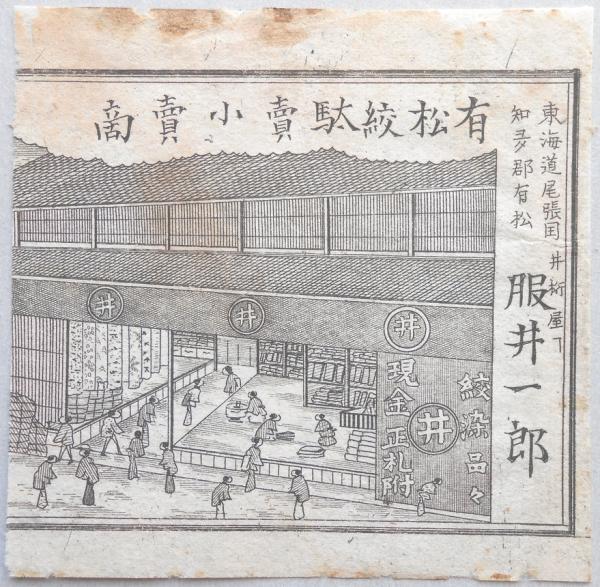 有松絞駄賣小賣商
東海道尾張国
知多郡有松
井桁屋ヿ
服井一郎
井
井
井
絞染品々
井
現金正札附